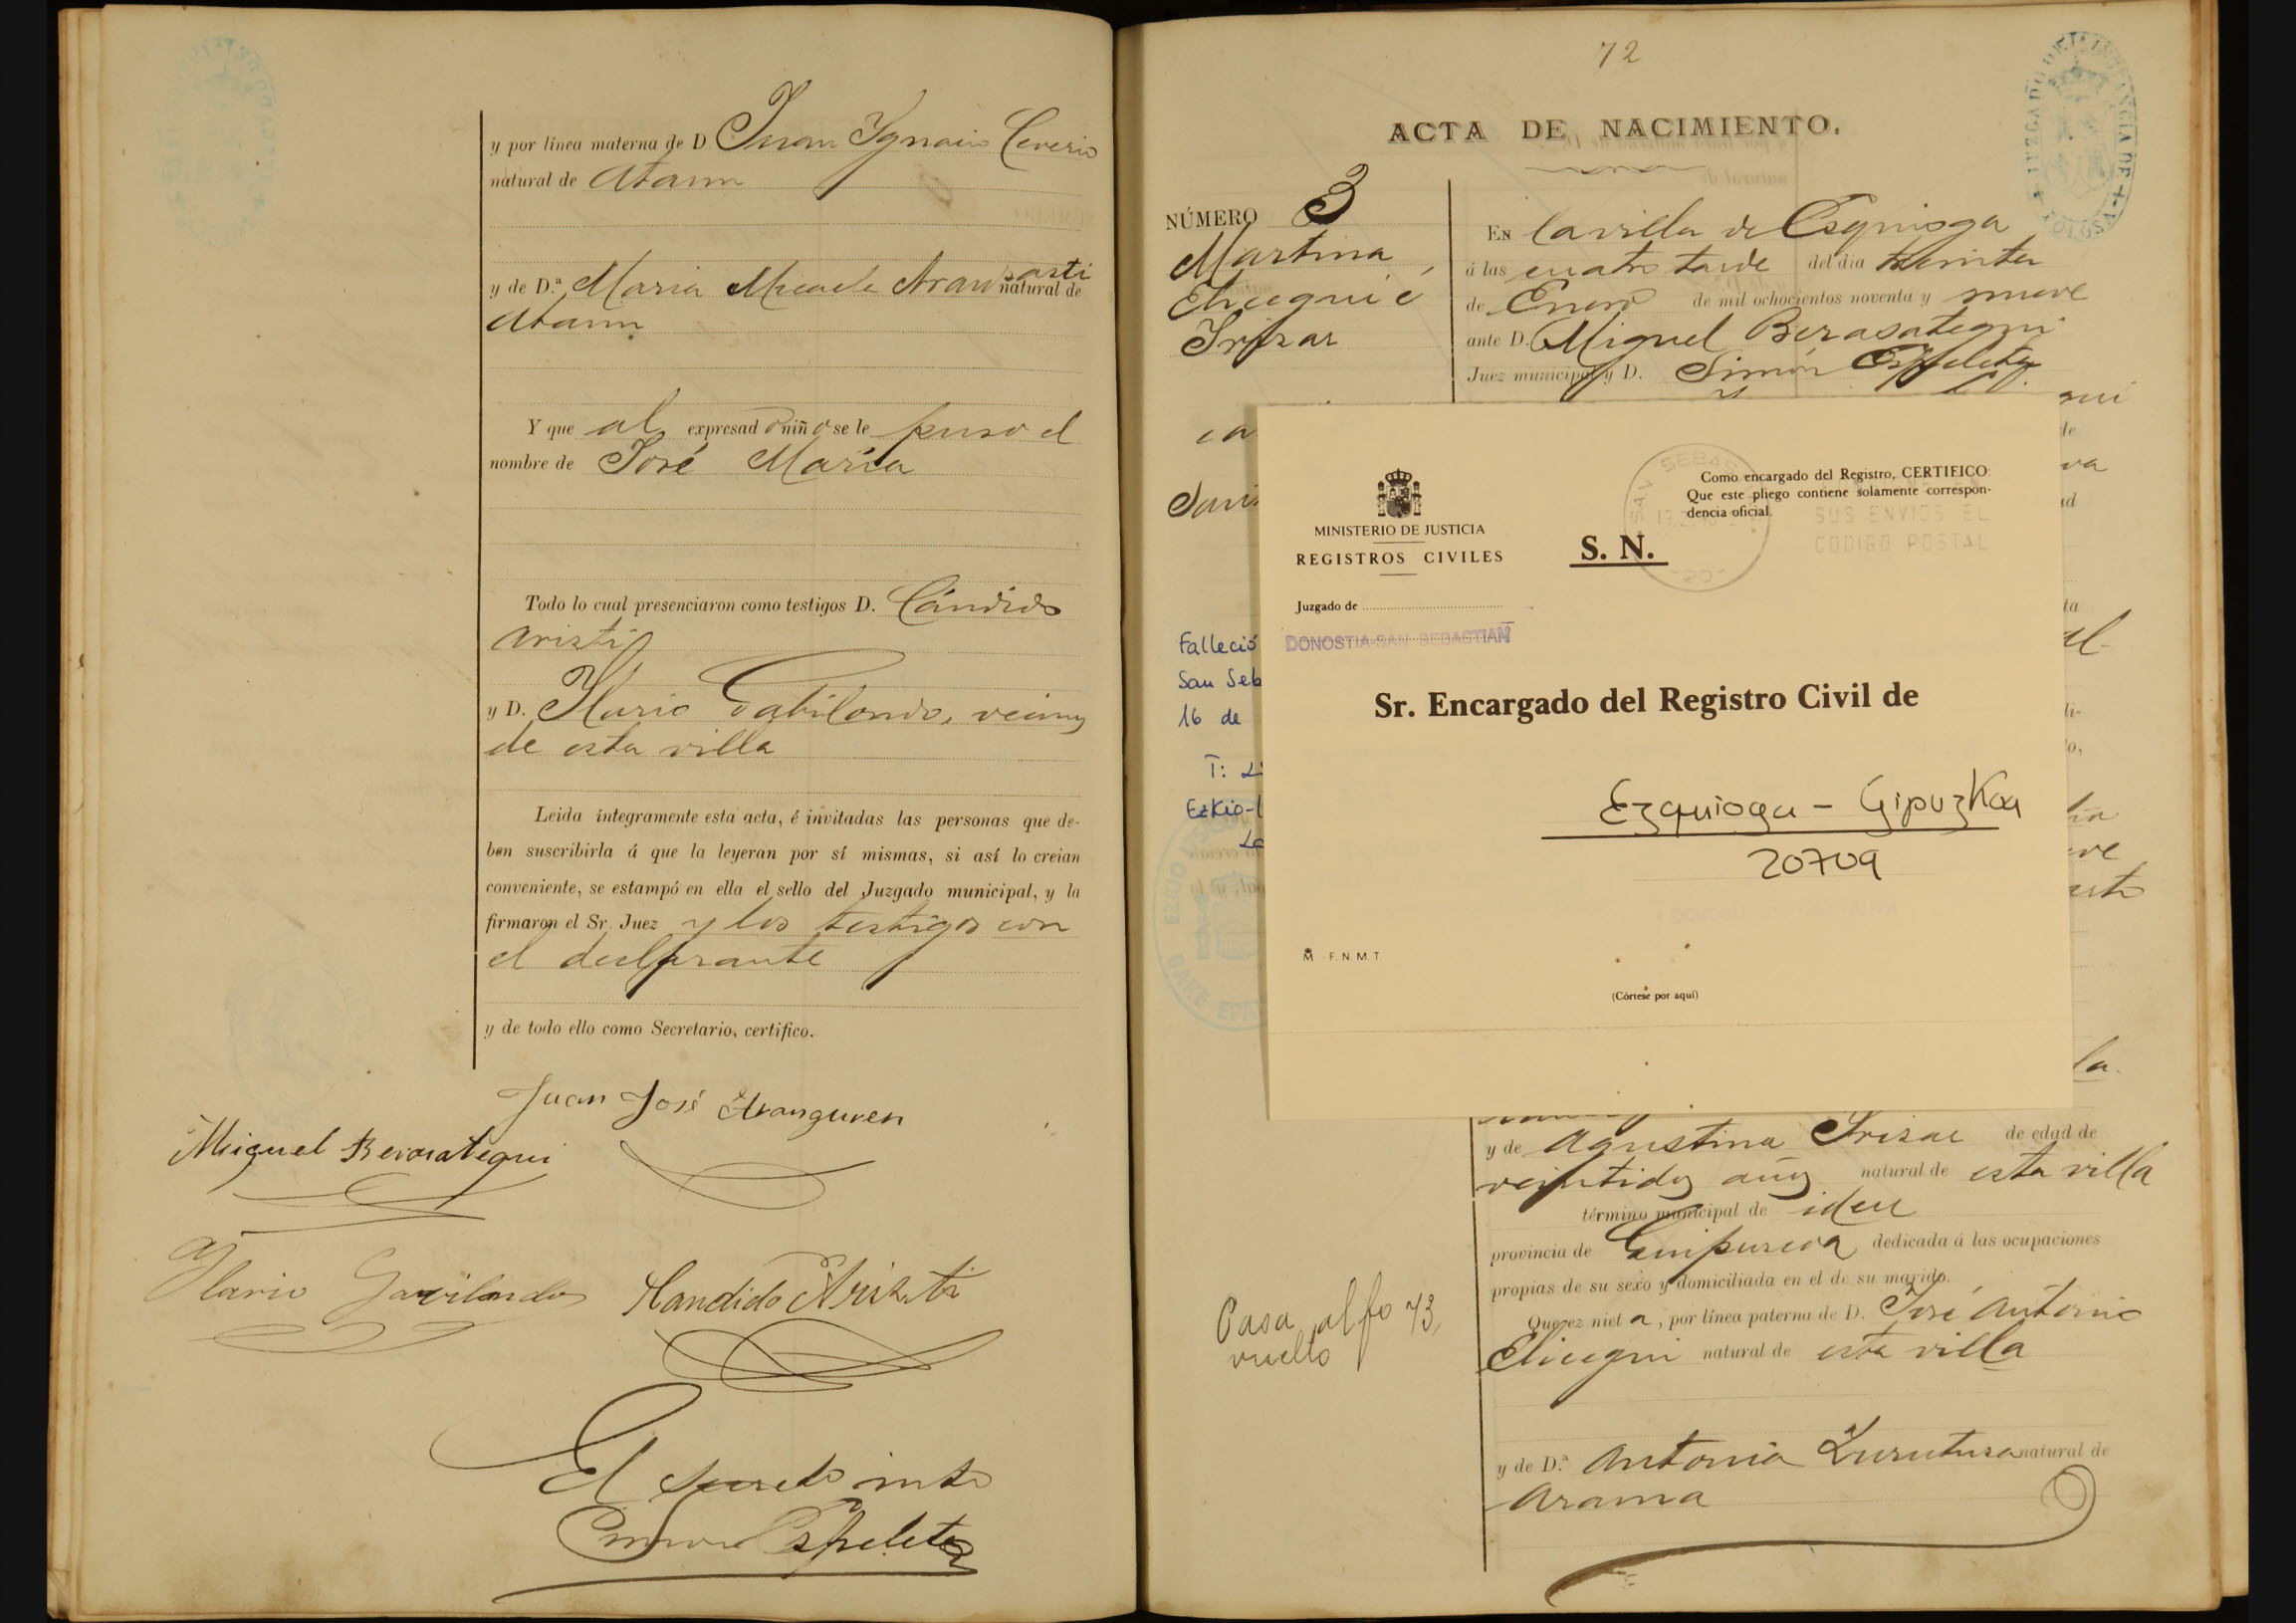 y por línea materna de D Juan Ygnacio Ceverio
natural de Ataun
y de D.ª Maria Micaela Aransasti natural de
Ataun
Y que al expresado niño se le puso el
nombre de José María
Todo lo cual presenciaron como testigos D. Cándido
Aristi
y D. Ylario Gabilondo, vecinos
de esta villa
Leida íntegramente esta acta, é invitadas las personas que de-
ben suscribirla á que la leyeran por sí mismas, si así lo creían
conveniente, se estampó en ella el sello del Juzgado municipal, y la
firmaron el Sr. Juez y los testigos con
el declarante
y de todo ello como Secretario, certifico.
Juan José Aranguren
Miguel Berasategui
Ylario Gavilondo Kandido Aristi
El Secreto into
Simon Espeleta
72
ACTA DE NACIMIENTO.
NÚMERO 3
Martina
Elicegui é
Irizar
En la villa de Ezquioga
á las cuatro tarde del día treinta
de Enero de mil ochocientos noventa y nueve
ante D. Miguel Berasategui
Juez municipal y D. Simón Espeleta
Falleció
San Seb
16 de
T:
Ezkio-I
MINISTERIO DE JUSTICIA
REGISTROS CIVILES
Como encargado del Registro, CERTIFICO:
Que este pliego contiene solamente correspon-
dencia oficial.
SUS ENVIOS EL
CODIGO POSTAL
S. N.
Juzgado de
DONOSTIA-SAN SEBASTIAN
Sr. Encargado del Registro Civil de
Ezquioga - Gipuzkoa
20709
F.N.M.T.
(Córtese por aquí)
y de Agustina Irizar de edad de
veintidos años natural de esta villa
término municipal de idem
provincia de Guipuzcoa dedicada á las ocupaciones
propias de su sexo y domiciliada en el de su marido.
Que es nieta, por línea paterna de D. José Antonio
Elicegui natural de esta villa
Pasa al fo 73,
vuelto
y de D.ª Antonia Zurutuza natural de
Arama